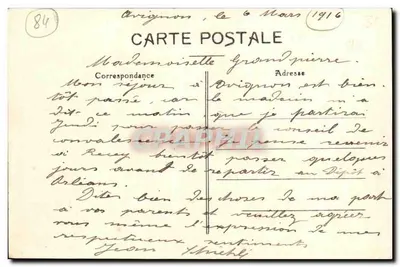 84
Avignon, le 6 Mars 1916
CARTE POSTALE
Mademoiselle Grandpierre.
Correspondance
Adresse
Mon séjour à Avignon est bien-
tôt passé, car le médecin m'a
dit ce matin que je partirai
Jeudi pour passer conseil de
convalescence. Je pense revenir
à Recey bientôt passer quelques
jours avant de repartir au Dépôt à
Orléans.
Dites bien des choses de ma part
à vos parents et veuillez agréer
vous même l'expression de mes
respectueux sentiments
Jean